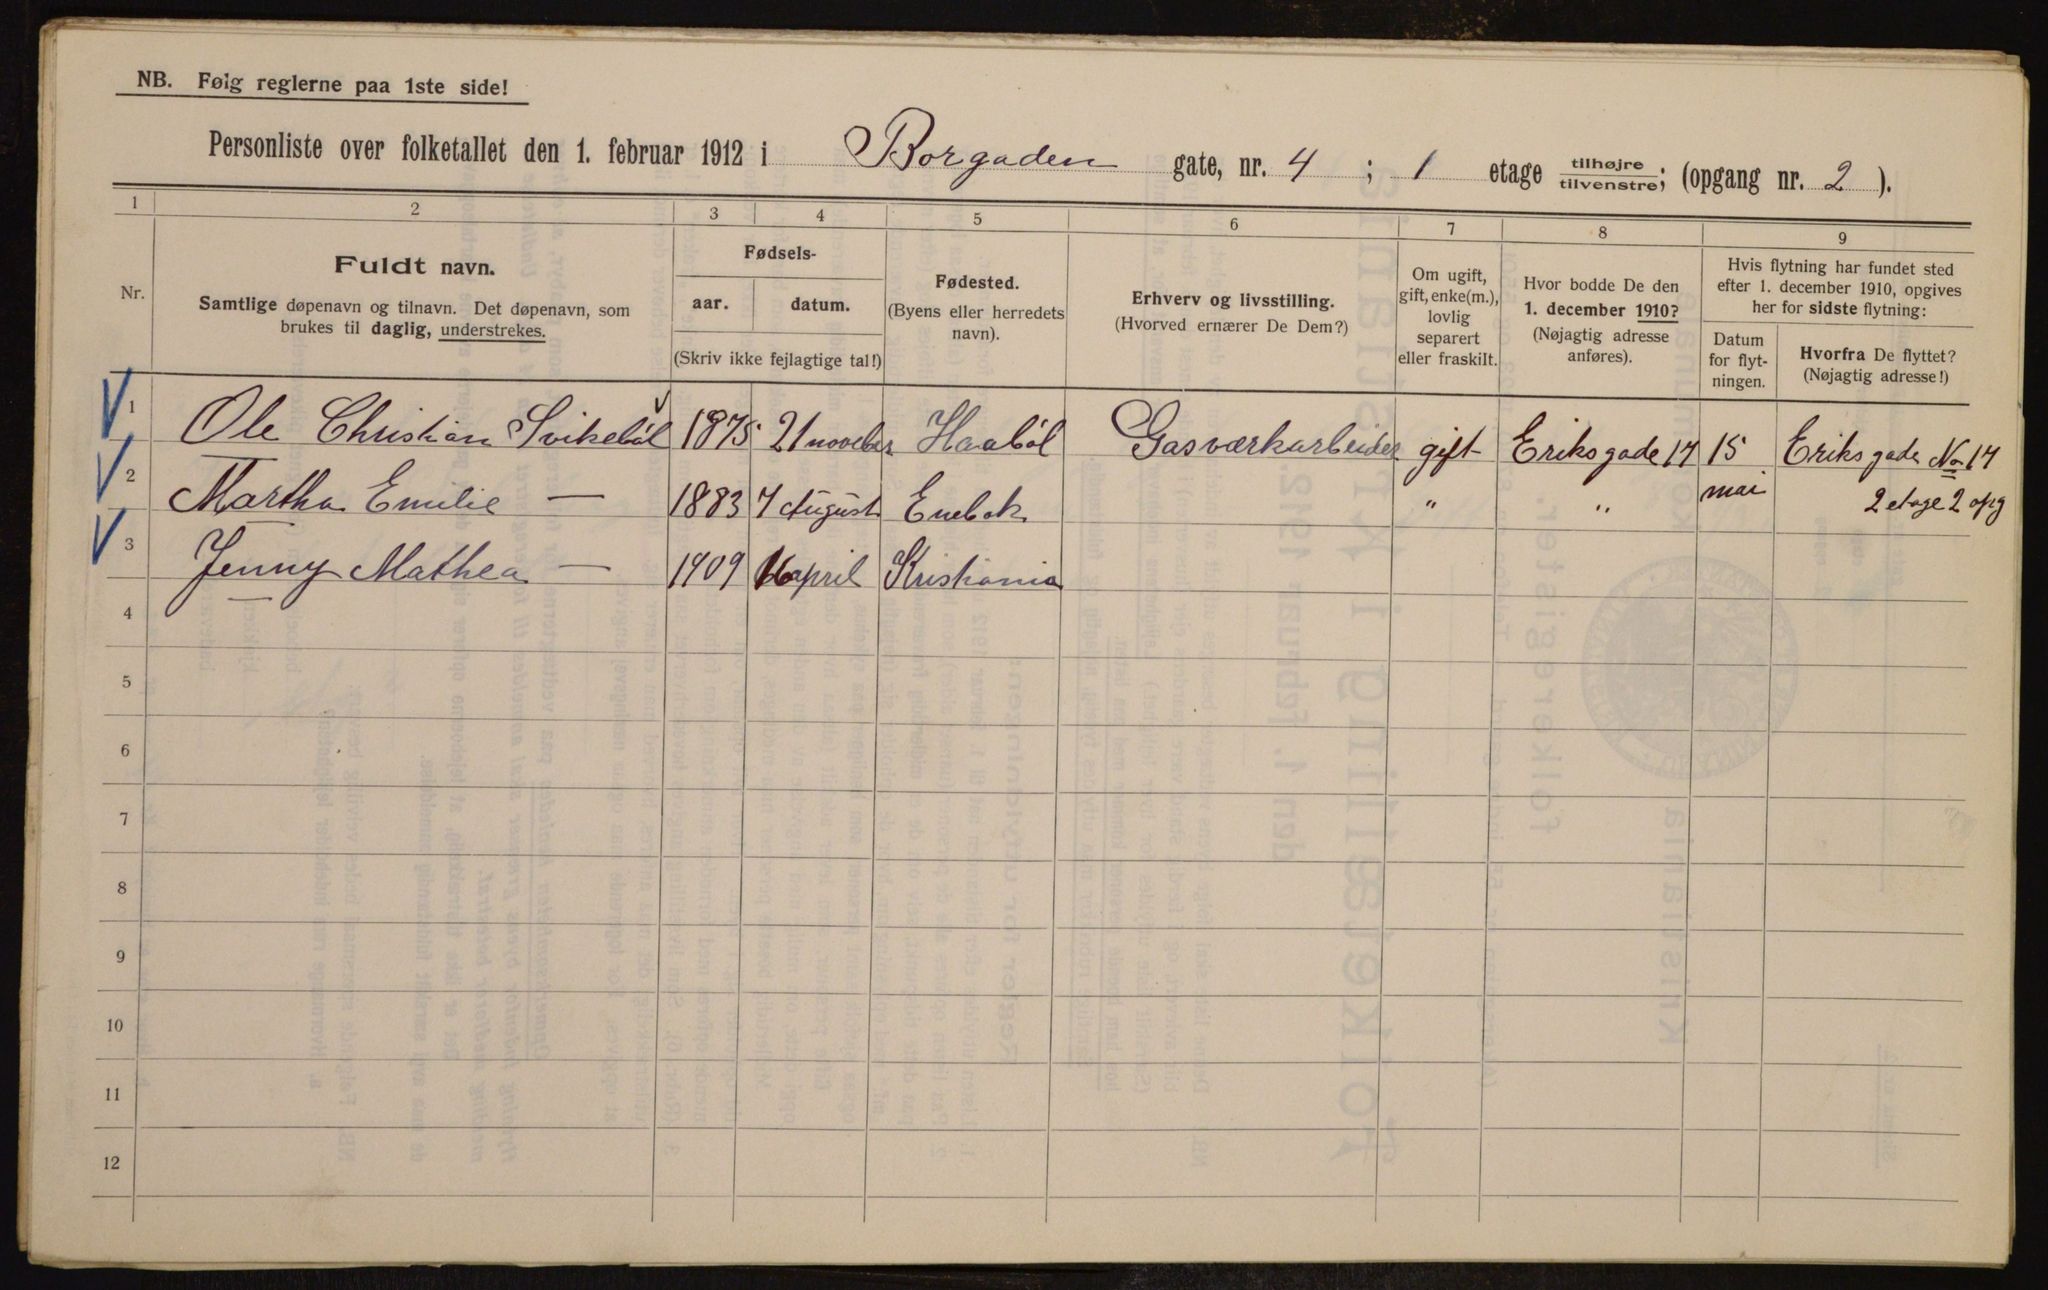 NB. Følg reglerne paa 1ste side!
Personliste over folketallet den 1. februar 1912 i Borgaden gate, nr. 4 ; 1 etage tilhøjre/tilvenstre; (opgang nr. 2 ).
1 2 3 4 5 6 7 8 9
Nr.
Fuldt navn.
Samtlige døpenavn og tilnavn. Det døpenavn, som
brukes til daglig, understrekes.
Fødsels-
aar. datum.
(Skriv ikke fejlagtige tal!)
Fødested.
(Byens eller herredets
navn).
Erhverv og livsstilling.
(Hvorved ernærer De Dem?)
Om ugift,
gift, enke(m.),
lovlig
separert
eller fraskilt.
Hvor bodde De den
1. december 1910?
(Nøjagtig adresse
anføres).
Hvis flytning har fundet sted
efter 1. december 1910, opgives
her for sidste flytning:
Datum
for flyt-
ningen.
Hvorfra De flyttet?
(Nøjagtig adresse!)
1 Ole Christian Svikebøl 1875 21 november Haabøl Gasværkarbeider gift Eriksgade 17 15 Eriksgade No 17
2 Martha Emilie — 1883 7 August Enebak " " mai 2 etage 2 opg
3 Jenny Mathea — 1909 april Kristiania
4
5
6
7
8
9
10
11
12